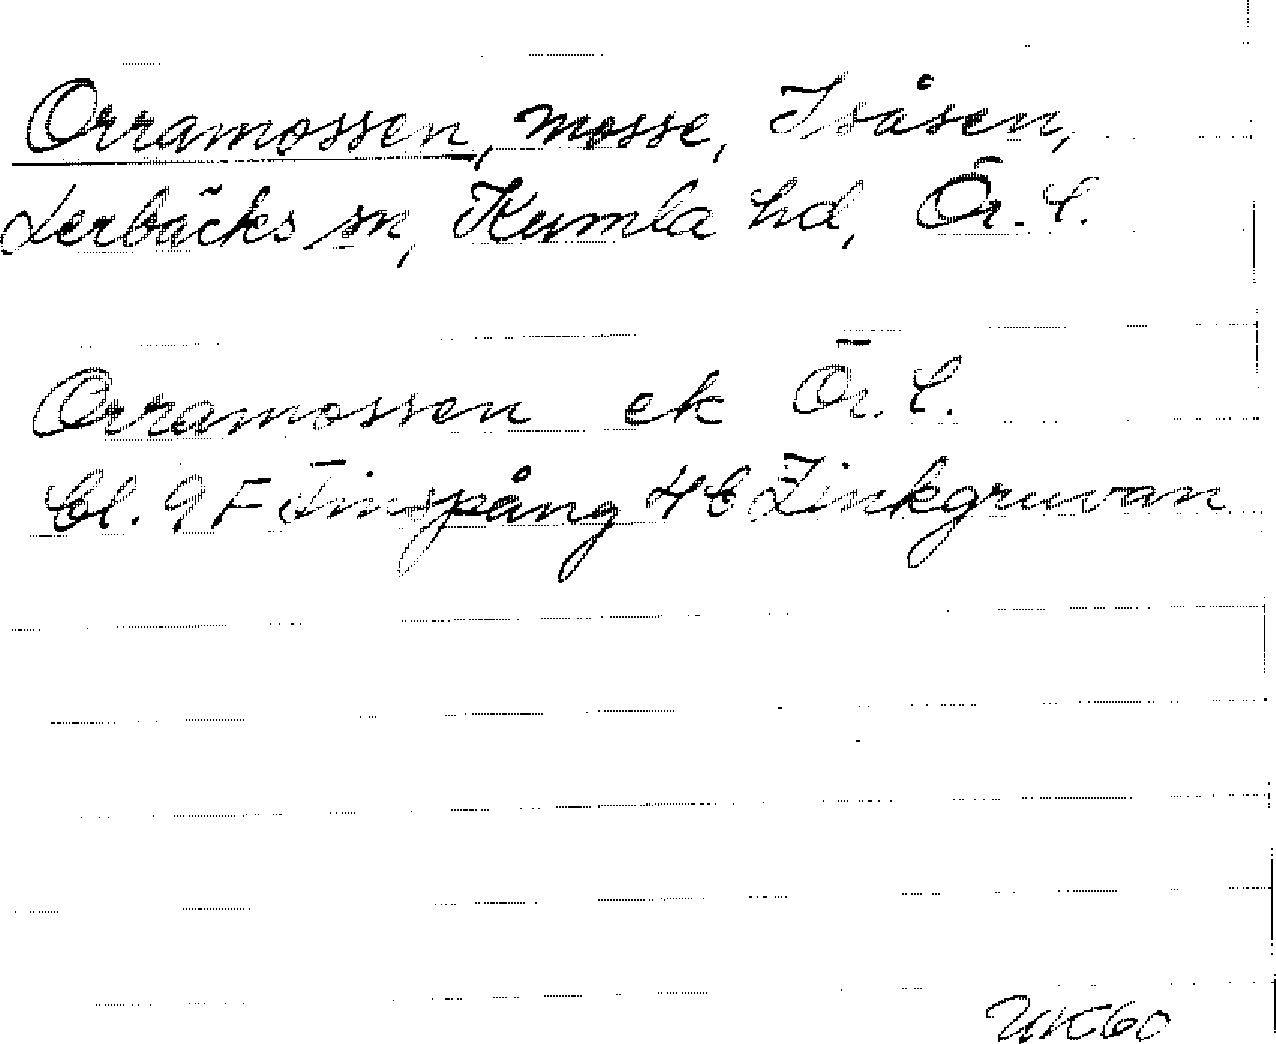 Orramossen, mosse, Isåsen,
Lerbäcks sn, Kumla hd, Ör. L.
Orramossen ek Ör. L.
Bl. 9 F Finspång 4 C Zinkgruvan
UK60